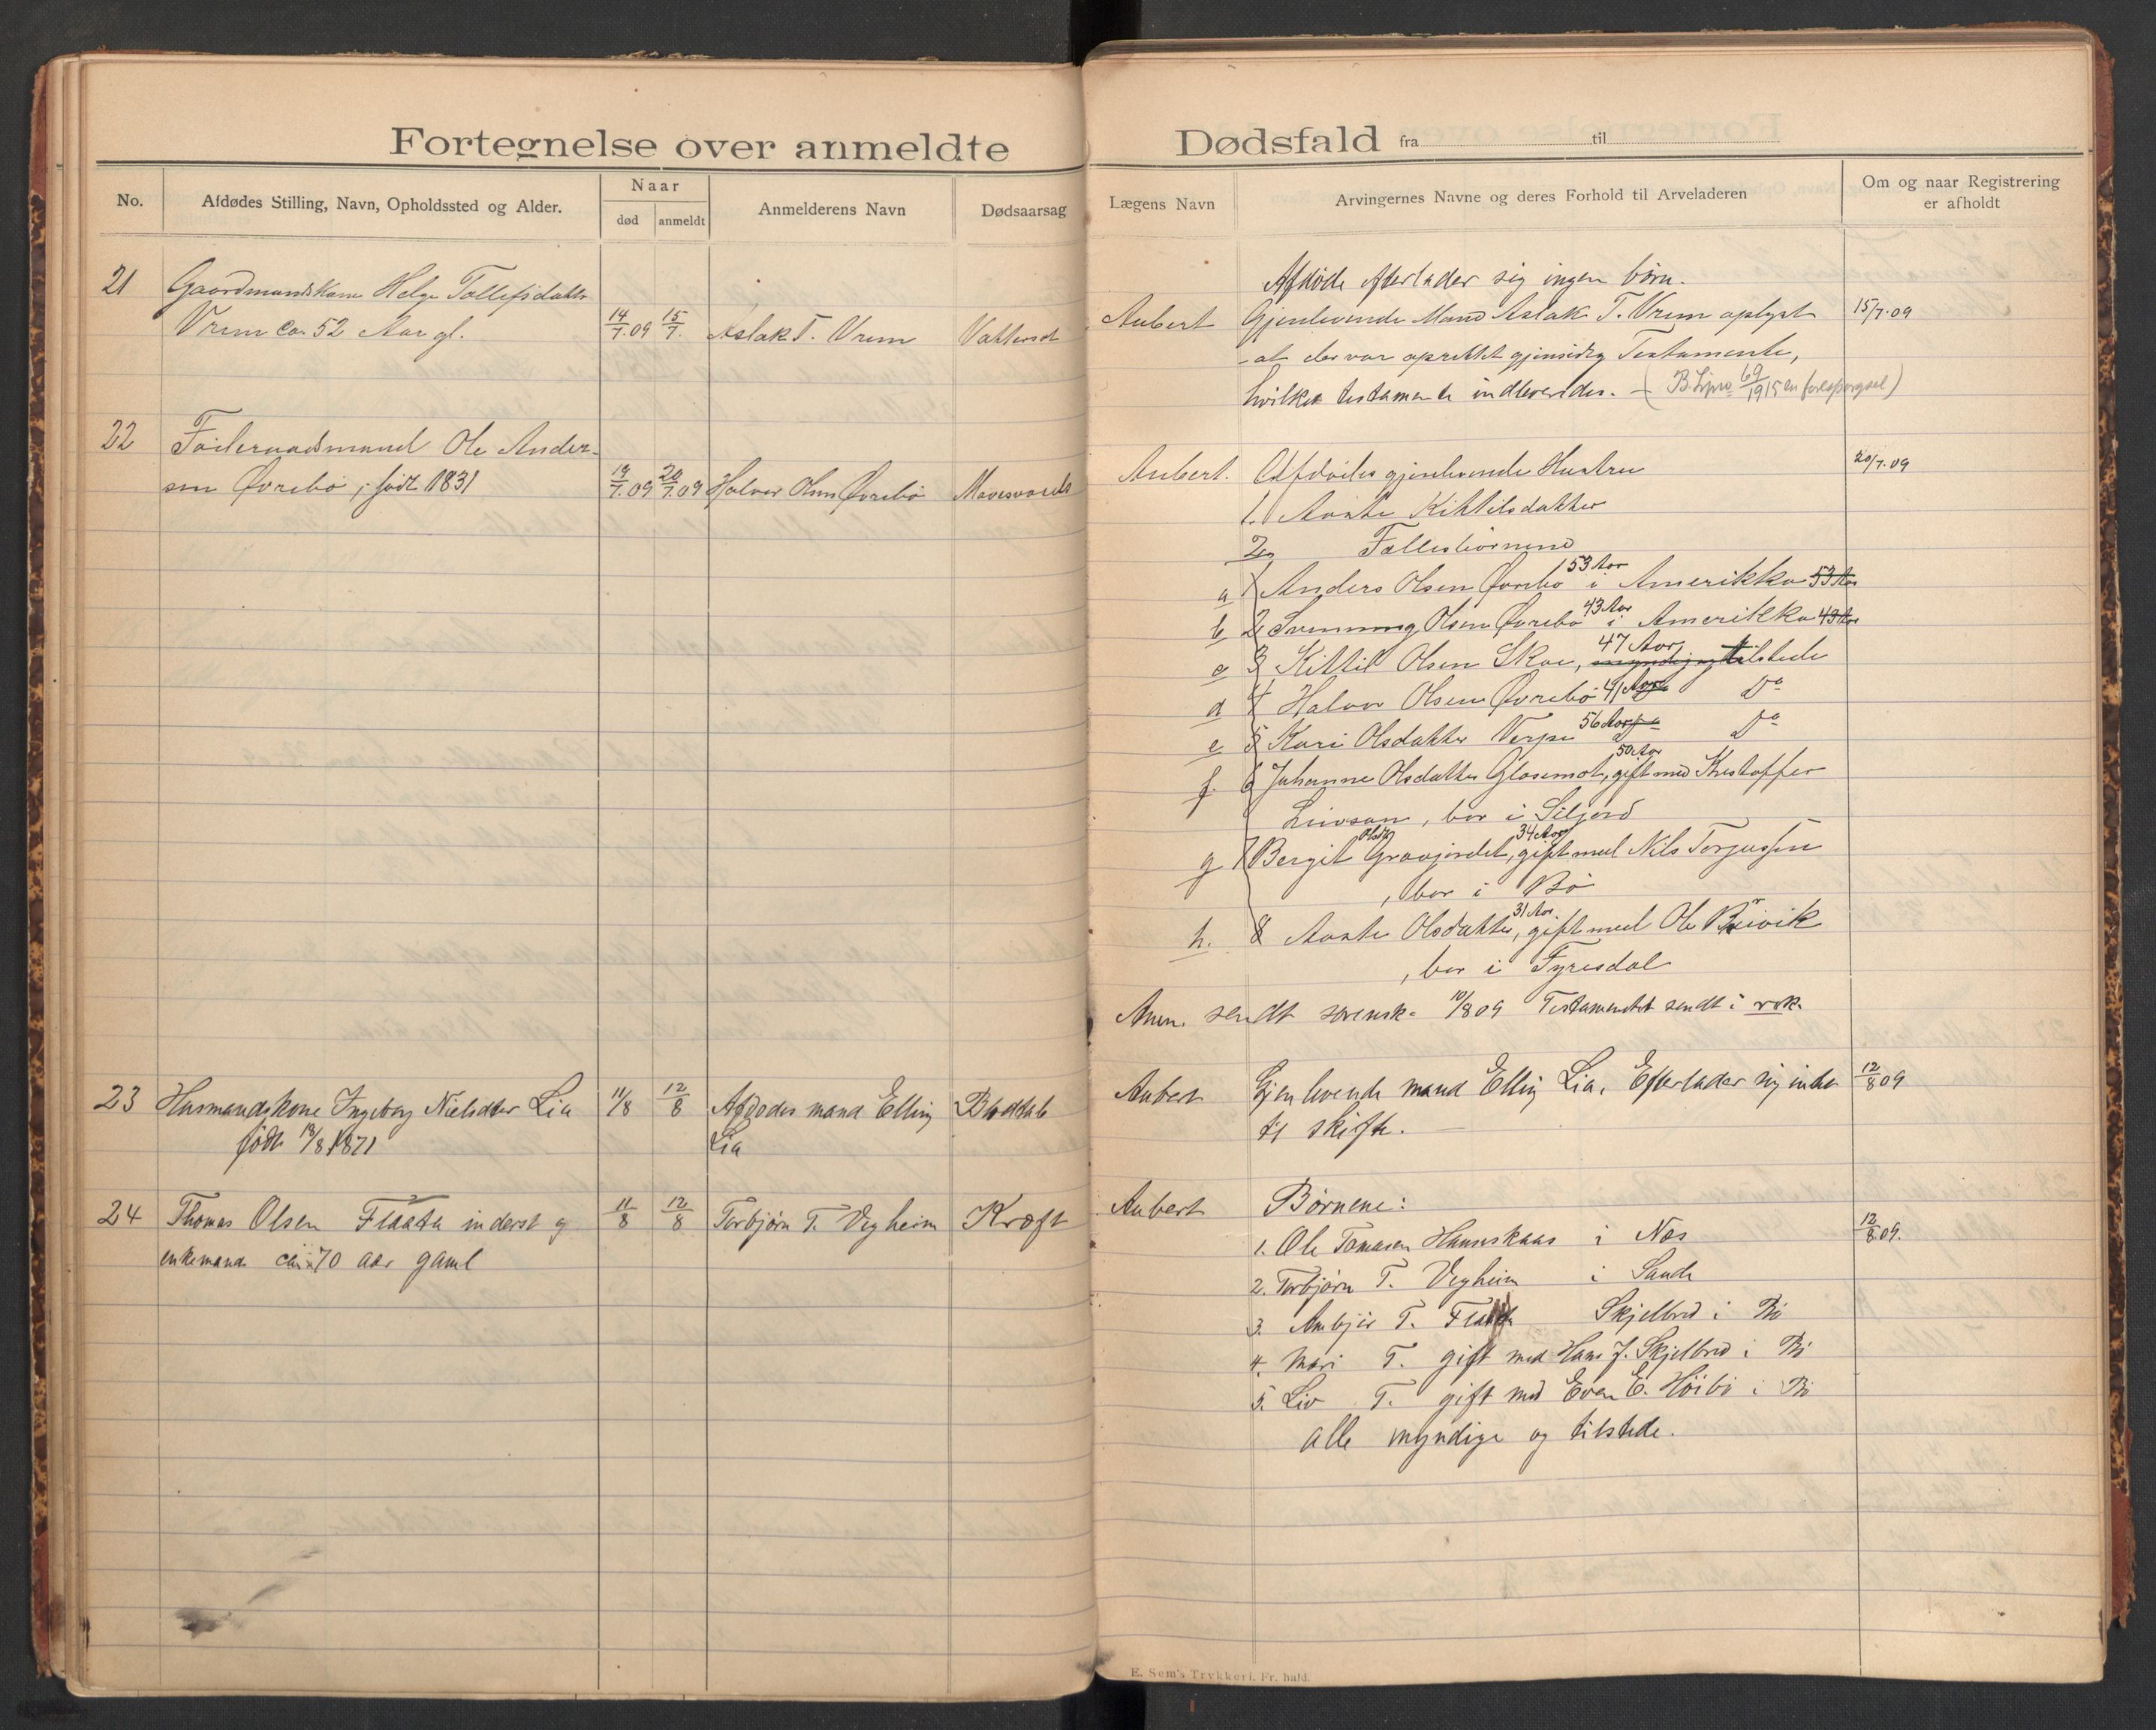 Fortegnelse over anmeldte
No.
Afdødes Stilling, Navn, Opholdssted og Alder.
Naar
død
anmeldt
Anmelderens Navn
Dødsaarsag
21 Gaardmandskone Helge Tollefsdatter
Vrem ca 52 Aar gl. 14/7.09 15/7. Aslak T. Vrem Vattersot
22 Föderaadsmand Ole Ander-
sen Øvrebö, født 1831 19/7.09 20/7.09 Halvor Olsen Øvrebö
23 Husmandskone Ingeborg Nielsdtr Lia 11/8 12/8 Afdødes mand Elling
født 13/8 1871 Lia
24 Thomas Olsen Flaata inderst og 11/8 12/8 Torbjørn T. Vegheim Kræft
enkemand ca 70 aar gaml
Dødsfald fra til
Lægens Navn
Arvingernes Navne og deres Forhold til Arveladeren
Om og naar Registrering
er afholdt
Afdøde efterlader sig ingen börn.
Aubert Gjenlevende Mand Aslak T. Vrem oplyst 15/7.09
at der var oprettet gjensidig Testamente,
hvilket testamente indleveredes. – ( 69/1915 en forespørgsel)
Aubert. Afdödes gjenlevende Hustru 20/7.09
1. Aaste Kittilsdatter
2 Fællesbörnene
a 1 Anders Olsen Øvrebö 53 Aar i Amerikka 53 Aar
b 2 Svenning Olsen Øvrebö 43 Aar i Amerikka 43 Aar
c 3 Kittil Olsen Skoe, 47 Aar, myndig og tilstede
d 4 Halvor Olsen Øvrebö 41 Aar Do
e 5 Kari Olsdatter Verpe 56 Aar Do
f. 6 Johanne Olsdatter Glosimot, 50 Aar gift med Kristoffer
, bor i Siljord
g 7 Bergit Olsdtr Graajordet, 34 Aar gift med Nils Torjussen
, bor i Bö
h. 8 Aaste Olsdatter, 31 Aar. gift med Ole Breivik
, bor i Fyresdal
Anm. sendt sorensk. 10/8 09 Testamentet sendt i rek.
Aubert Gjenlevende mand Elling Lia. Efterlader sig intet 12/8 09
til skifte.
Aubert Børnene:
1. Ole Tomasen Haunskaas i Næs 12/8 09.
2. Torbjørn T. Vegheim i Saude
3. Anbjör T. Flaata Skjelbred i Bö
4. Mari T. gift med Hans J. Skjelbred i Bö
5. Liv T. gift med Even E. Höibö i Bö
alle myndige og tilstede.
E. Sem's Trykkeri, Fr. hald.